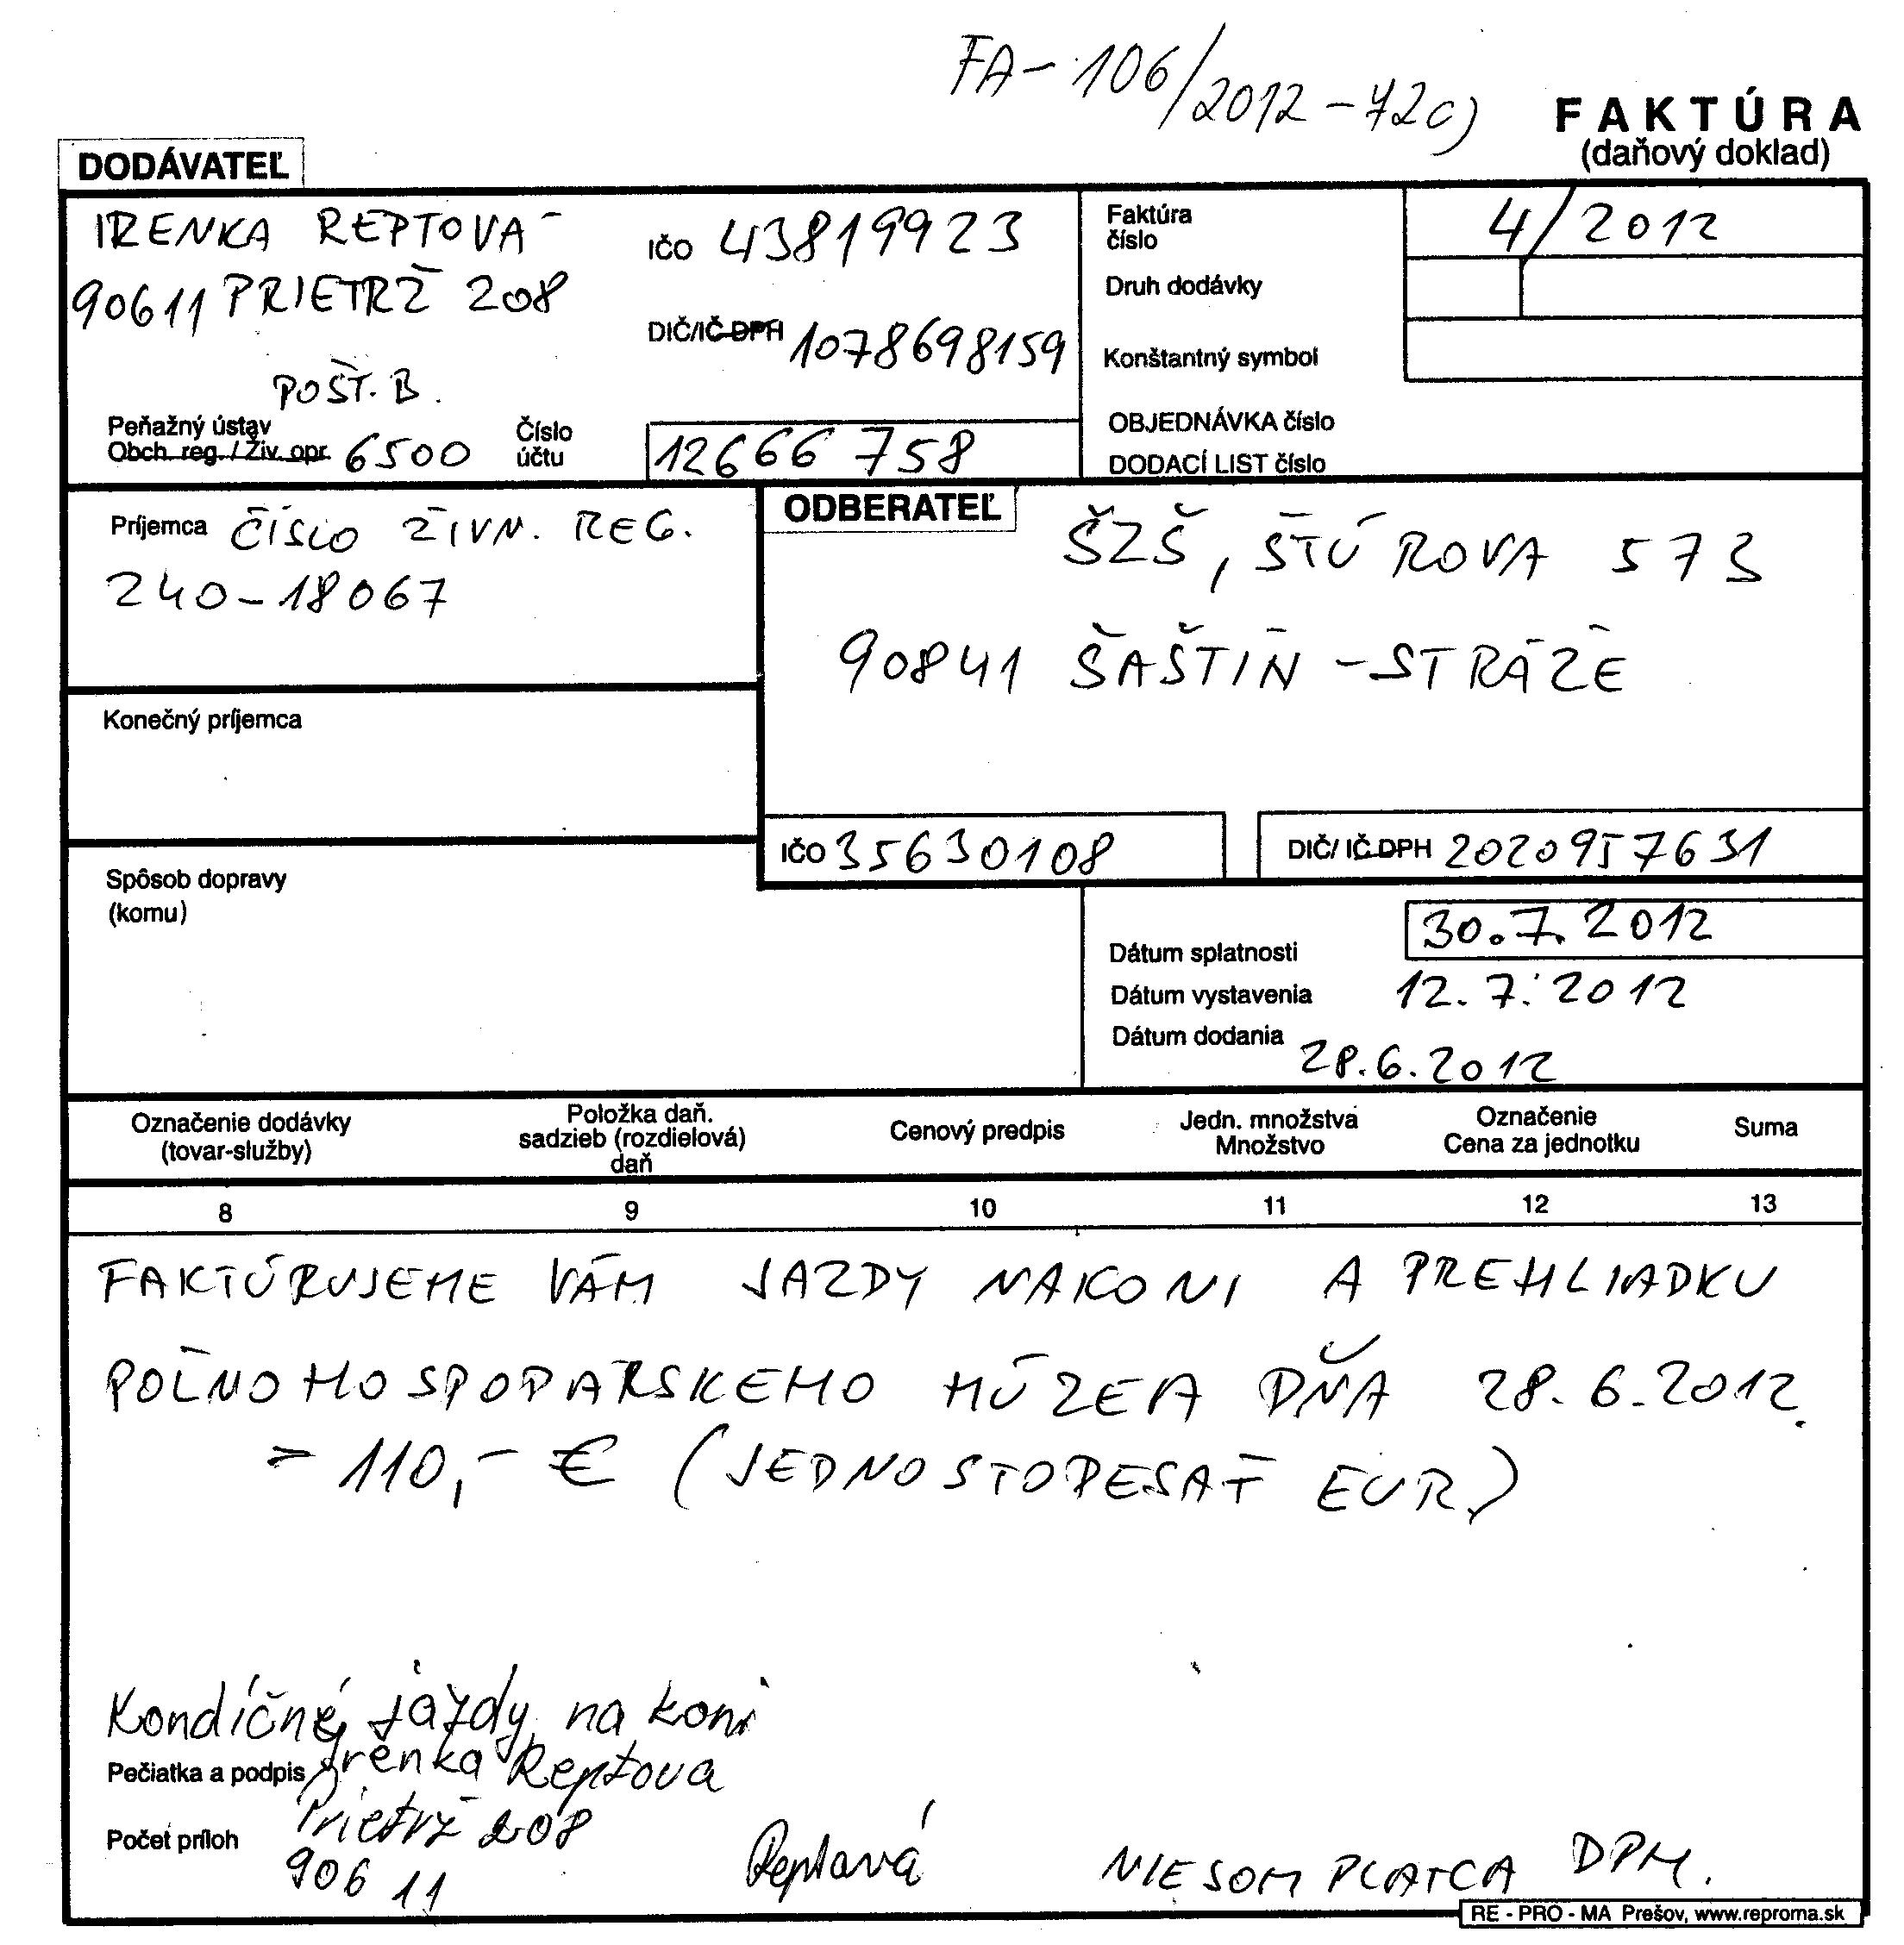 FA - 106/2012 - 72c)
FAKTÚRA
(daňový doklad)
DODÁVATEĽ
IRENKA REPTOVÁ
90611 PRIETRŽ 208
IČO 43819923
DIČ/IČ DPH 1078698159
POŠT. B.
Peňažný ústav
Obch. reg. / Živ. opr. 6500
Číslo účtu 12666758
Faktúra číslo 4/2012
Druh dodávky
Konštantný symbol
OBJEDNÁVKA číslo
DODACÍ LIST číslo
Príjemca ČÍSLO ŽIVN. REG.
240-18067
ODBERATEĽ
ŠZŠ, ŠTÚROVA 573
90841 ŠAŠTÍN - STRÁŽE
Konečný príjemca
IČO 35630108
DIČ/ IČ DPH 2020957631
Spôsob dopravy
(komu)
Dátum splatnosti 30.7.2012
Dátum vystavenia 12.7.2012
Dátum dodania 28.6.2012
Označenie dodávky (tovar-služby)
Položka daň. sadzieb (rozdielová) daň
Cenový predpis
Jedn. množstva Množstvo
Označenie Cena za jednotku
Suma
8 9 10 11 12 13
FAKTÚRUJEME VÁM JAZDY NA KONI A PREHLIADKU
POĽNOHOSPODÁRSKEHO MÚZEA DŇA 28.6.2012
= 110,- € (JEDNOSTODESAŤ EUR.)
Kondíčné jazdy na koni
Pečiatka a podpis Irenka Reptova
Počet príloh Prietrž 208
906 11
Reptová
NIE SOM PLATCA DPH.
RE - PRO - MA Prešov, www.reproma.sk